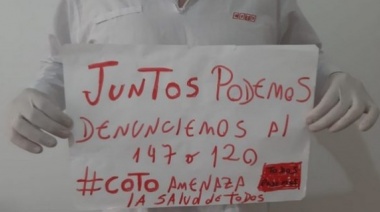 COTO
JUNTOS PODEMOS
DENUNCIEMOS Al
147 o 120
#COTO AMENAZA
LA SALUD de TODOS